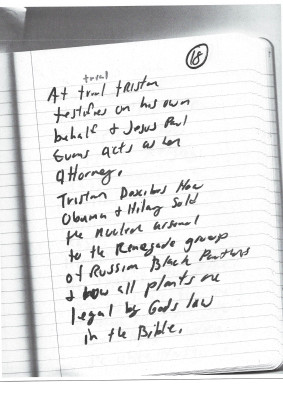 18
trial
At trial tristan
testifies on his own
behalf & Jesus Paul
Evans acts as her
attorney.
Tristan Describes How
Obama & Hilary sold
the nuclear arsenal
to the Renegade group
of Russian Black Panthers
& how all plants are
legal by Gods law
in the Bible.